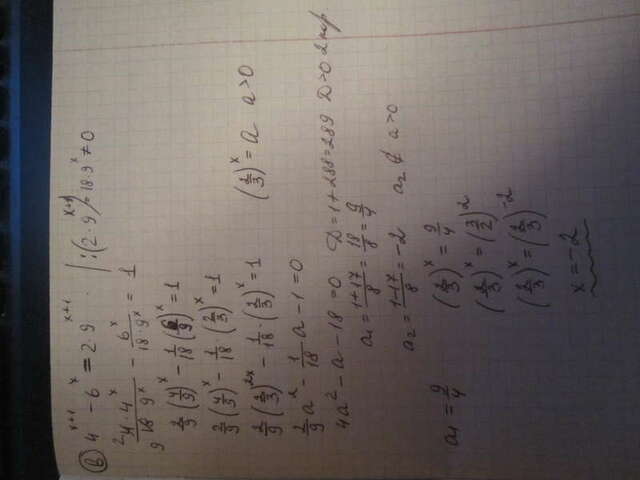 (б) 4^(x+1) - 6^x = 2·9^(x+1) | :(2·9^(x+1)) = 18·9^x ≠ 0
4·4^x/(18·9^x) - 6^x/(18·9^x) = 1
2/9(4/9)^x - 1/18(6/9)^x = 1
2/9(4/9)^x - 1/18·(2/3)^x = 1
2/9(2/3)^(2x) - 1/18·(2/3)^x = 1 (2/3)^x = a a>0
2/9a^2 - 1/18a - 1 = 0
4a^2 - a - 18 = 0 D = 1+288 = 289 D>0 2 кор
a1 = (1+17)/8 = 18/8 = 9/4
a2 = (1-17)/8 = -2 a2 ∉ a>0
a1 = 9/4 (2/3)^x = 9/4
(2/3)^x = (3/2)^2
(2/3)^x = (2/3)^(-2)
x = -2